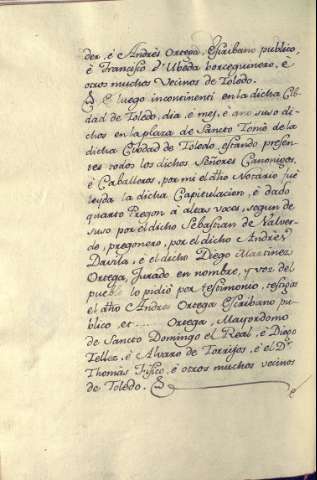 der, é Andrès Ortega, Escribano publico,
é Francisco d'Ubeda borceguinero, é
otros muchos Vecinos de Toledo.
E luego incontinenti en la dicha Cib
dad de Toledo, dia, e mes, é ano suso di
chos en la plaza de Sancto Tomè de la
dicha Cibdad de Toledo, estando presen
tes todos los dichos Señores Canonigos,
é Caballeros, por mi el dho Notario fuè
leyda la dicha Capitulacion, é dado
quarto Pregon à altas voces, segun de
suso por el dicho Sebastian de Valver
de, pregonero, por el dicho Andrès
Davila, é el dicho Diego Martinez
Ortega, Jurado en nombre, y voz del
pueblo lo pidiò por testimonio, testigos
el dho Andrès Ortega Escribano pu
blico et ..... Ortega, Mayordomo
de Sancto Domingo el Real, é Diego
Tellez, é Alvaro de Torrijos, é el Dr.
Thomàs Fisico, é otros muchos vecinos
de Toledo.